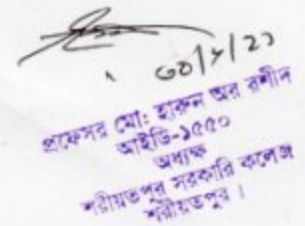 ৩০/৮/২১
প্রফেসর মো: হারুন অর রশীদ
আইডি-১৫৫০
অধ্যক্ষ
শরীয়তপুর সরকারি কলেজ
শরীয়তপুর ।